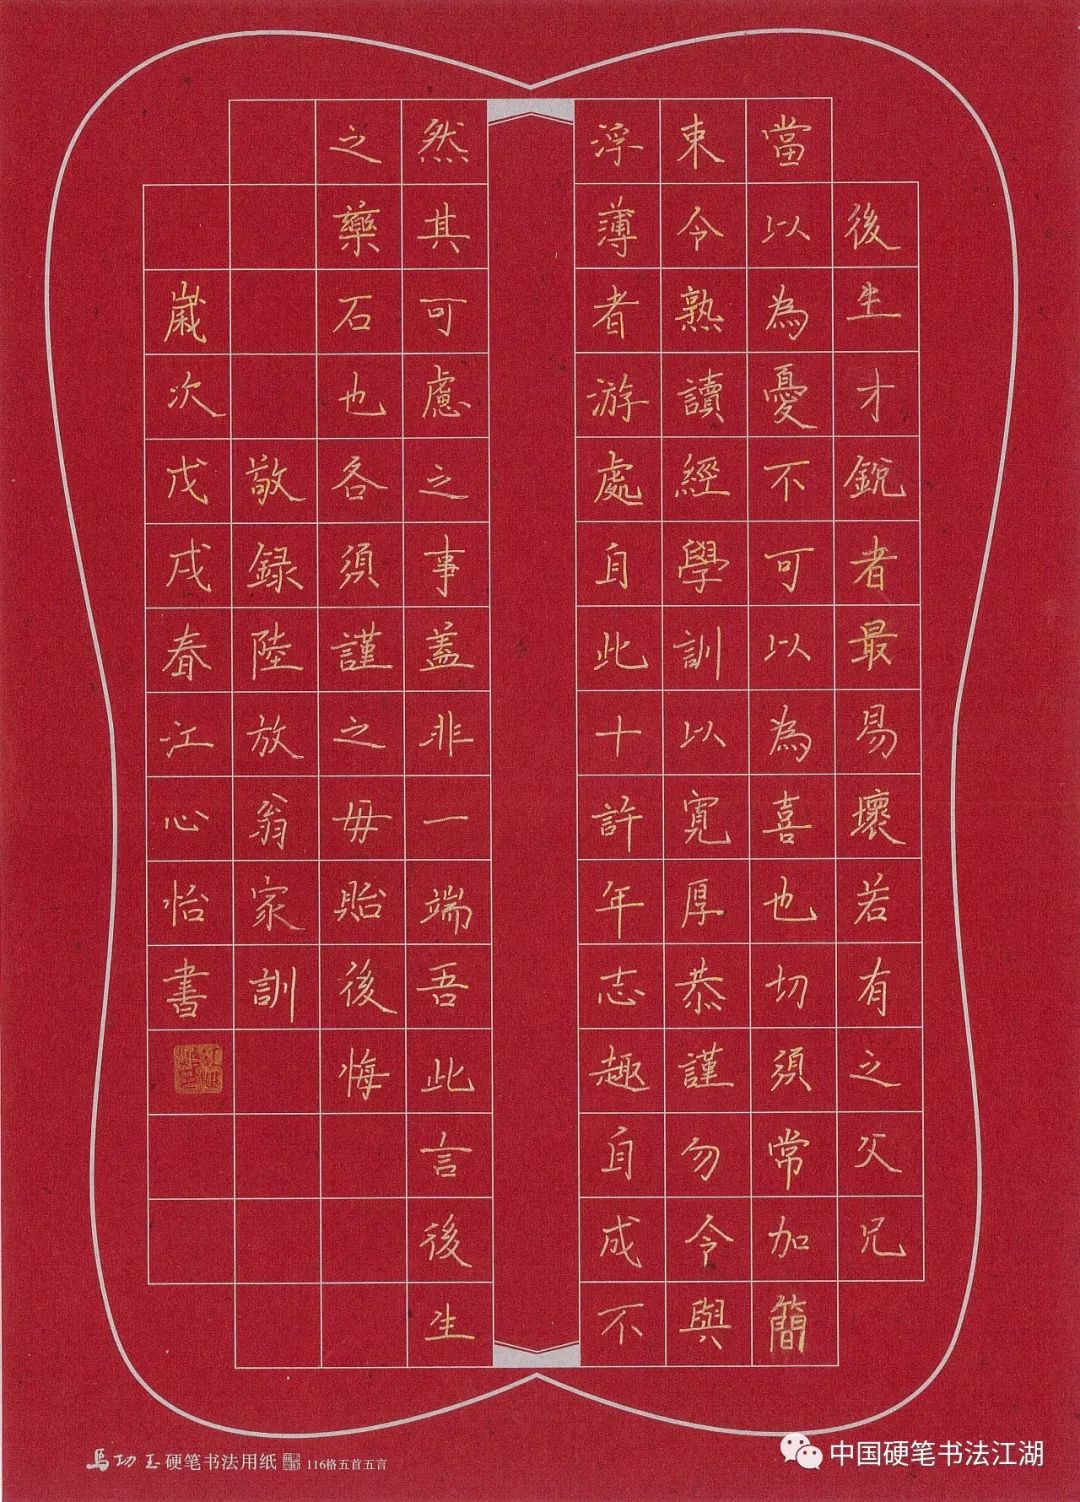 後生才銳者最易壞若有之父兄
當以為憂不可以為喜也切須常加簡
束令熟讀經學訓以寬厚恭謹勿令與
浮薄者游處自此十許年志趣自成不
然其可慮之事蓋非一端吾此言後生
之藥石也各須謹之毋貽後悔
敬録陸放翁家訓
歲次戊戌春江心怡書
馬功王硬笔书法用纸 116格五首五言
中国硬笔书法江湖